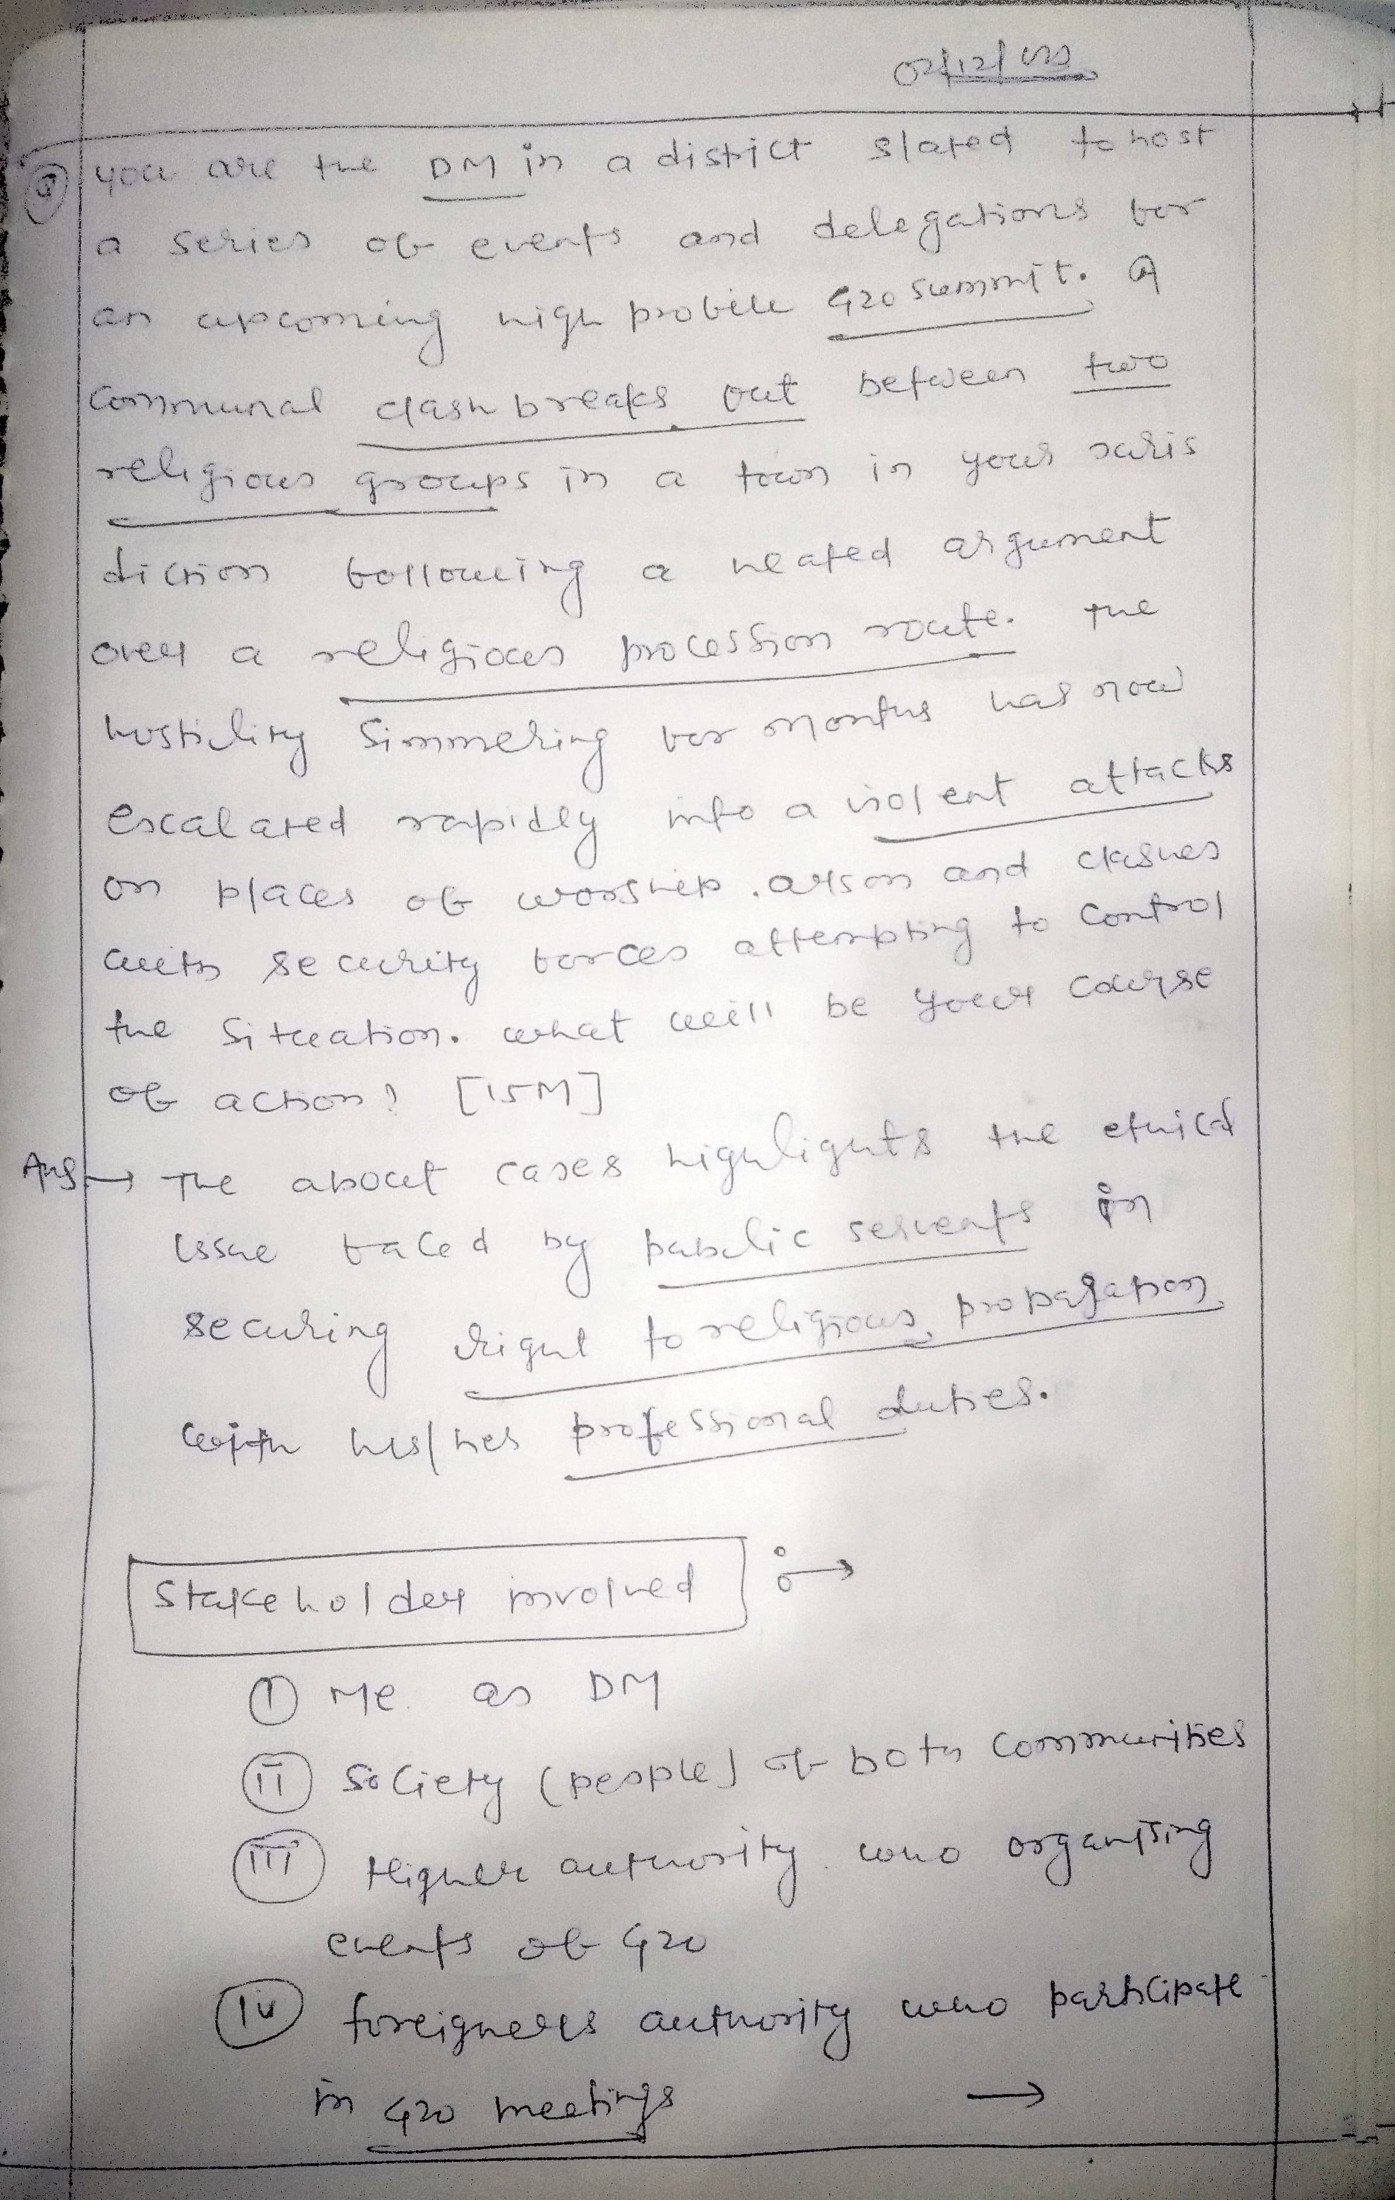 02/12/23
you are the DM in a district slated to host
a series of events and delegations for
an upcoming high profile G20 summit. A
communal clash breaks out between two
religious groups in a town in your juris
diction following a heated argument
over a religious procession route. The
hostility simmering for months has now
escalated rapidly into a violent attacks
on places of worship. arson and clashes
with security forces attempting to control
the situation. what will be your course
of action? [15M]
Ans → The about cases highlights the ethical
issue faced by public servents in
securing right to religious propagation
with his/her professional duties.
Stakeholder involved :→
(i) Me as DM
(ii) Society (people) of both communities
(iii) Higher authority who organising
events of G20
(iv) foreigners authority who participate
in G20 meetings →